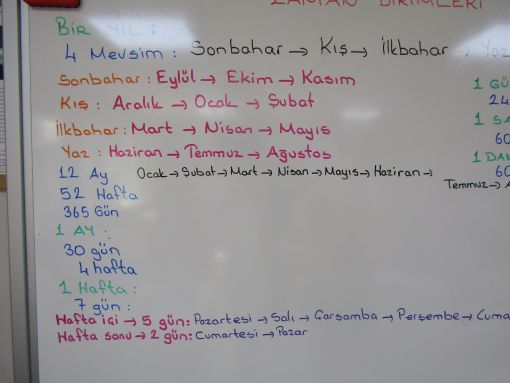 ZAMAN BİRİMLERİ
BİR YIL :
4 Mevsim : Sonbahar → Kış → İlkbahar → Yaz
Sonbahar : Eylül → Ekim → Kasım
Kış : Aralık → Ocak → Şubat
İlkbahar : Mart → Nisan → Mayıs
Yaz : Haziran → Temmuz → Ağustos
12 Ay Ocak → Şubat → Mart → Nisan → Mayıs → Haziran →
Temmuz → A
52 Hafta
365 Gün
1 AY :
30 gün
4 hafta
1 Hafta :
7 gün :
Hafta içi → 5 gün : Pazartesi → Salı → Çarşamba → Perşembe → Cuma
Hafta sonu → 2 gün : Cumartesi → Pazar
1 GÜ
24
1 SA
60
1 DA
60